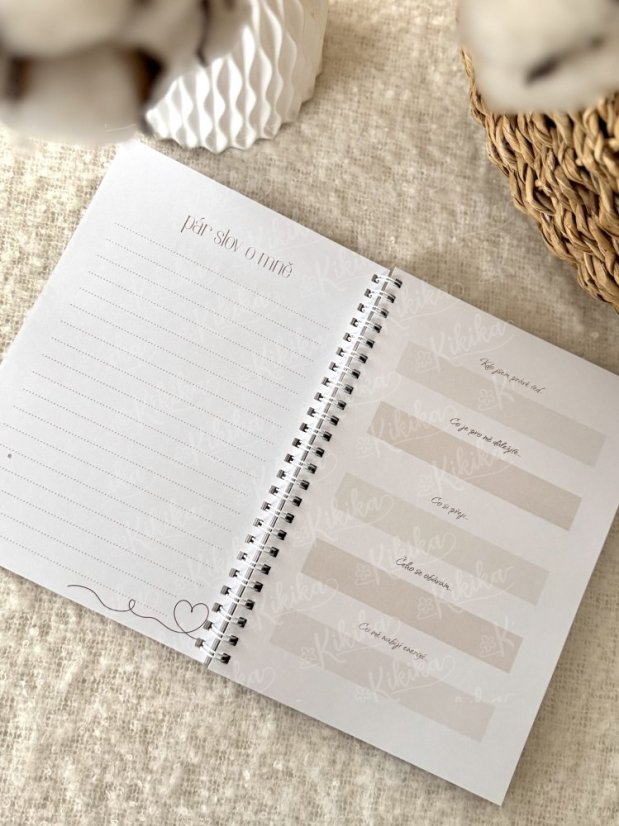 pár slov o mně
Kdo jsem právě teď...
Co je pro mě důležité...
Co si přeji...
Čeho se obávám...
Co mě nabíjí energií...
Kikika